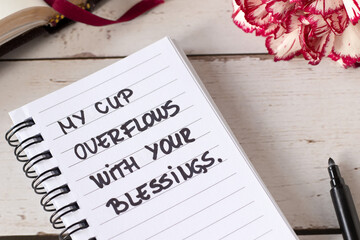 MY CUP
OVERFLOWS
WITH YOUR
BLESSINGS.